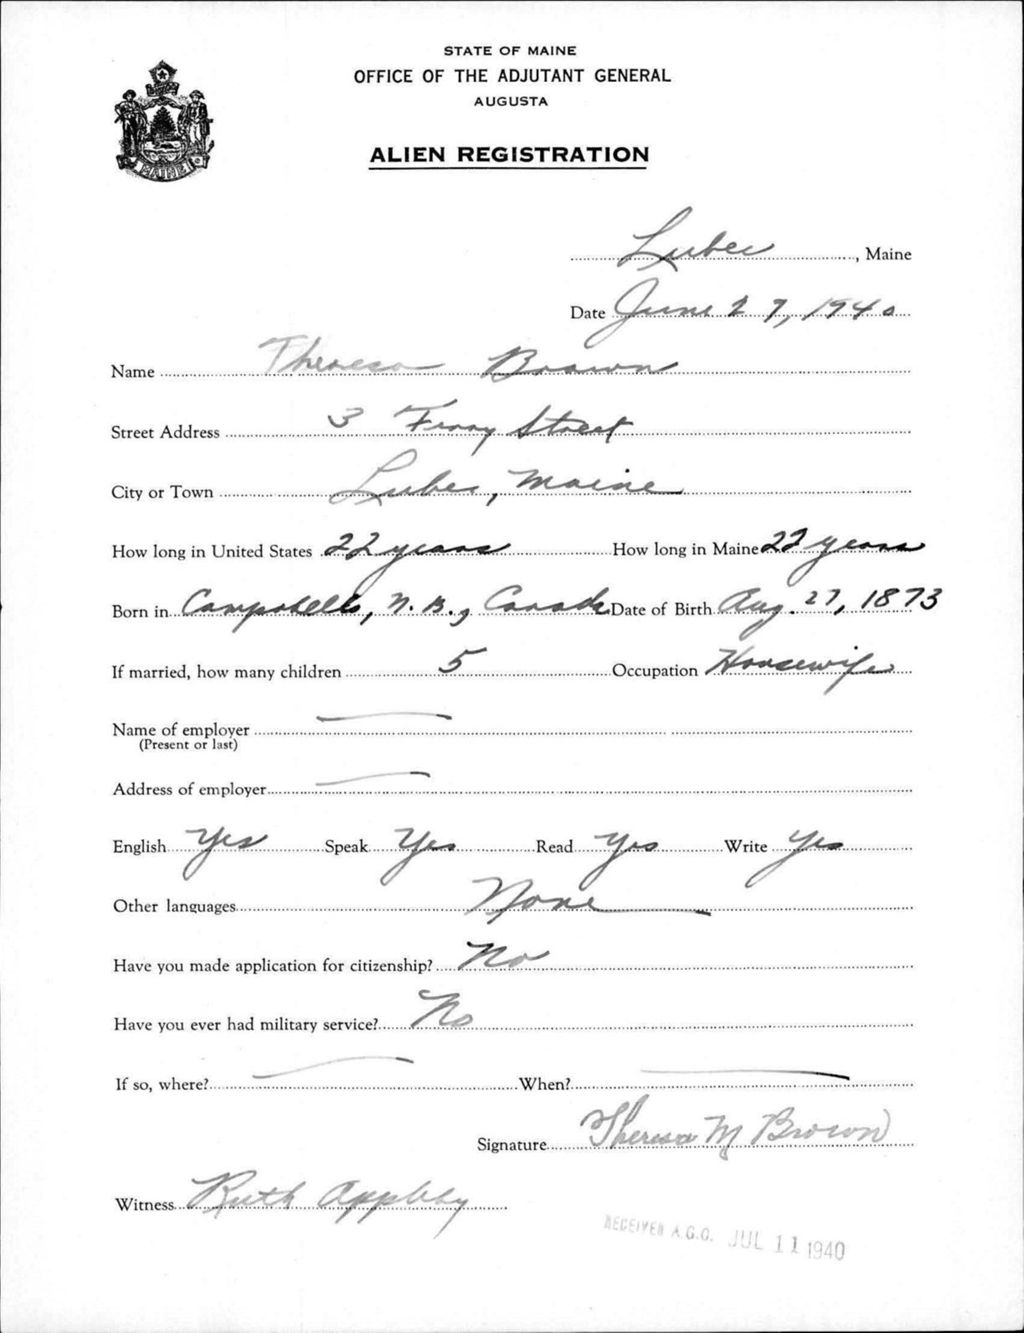 STATE OF MAINE
OFFICE OF THE ADJUTANT GENERAL
AUGUSTA
ALIEN REGISTRATION
MAINE
Lubec, Maine
Date June 27, 1940
Name Theresa Brown
Street Address 3 Ferry Street
City or Town Lubec, Maine
How long in United States 22 years How long in Maine 22 years
Born in Campobello, N.B., Canada Date of Birth Aug. 27, 1873
If married, how many children 5 Occupation Housewife
Name of employer
(Present or last)
Address of employer
English Yes Speak Yes Read Yes Write Yes
Other languages None
Have you made application for citizenship? No
Have you ever had military service? No
If so, where? When?
Signature Theresa M Brown
Witness Ruth Appleby
RECEIVED A.G.O. JUL 11 1940